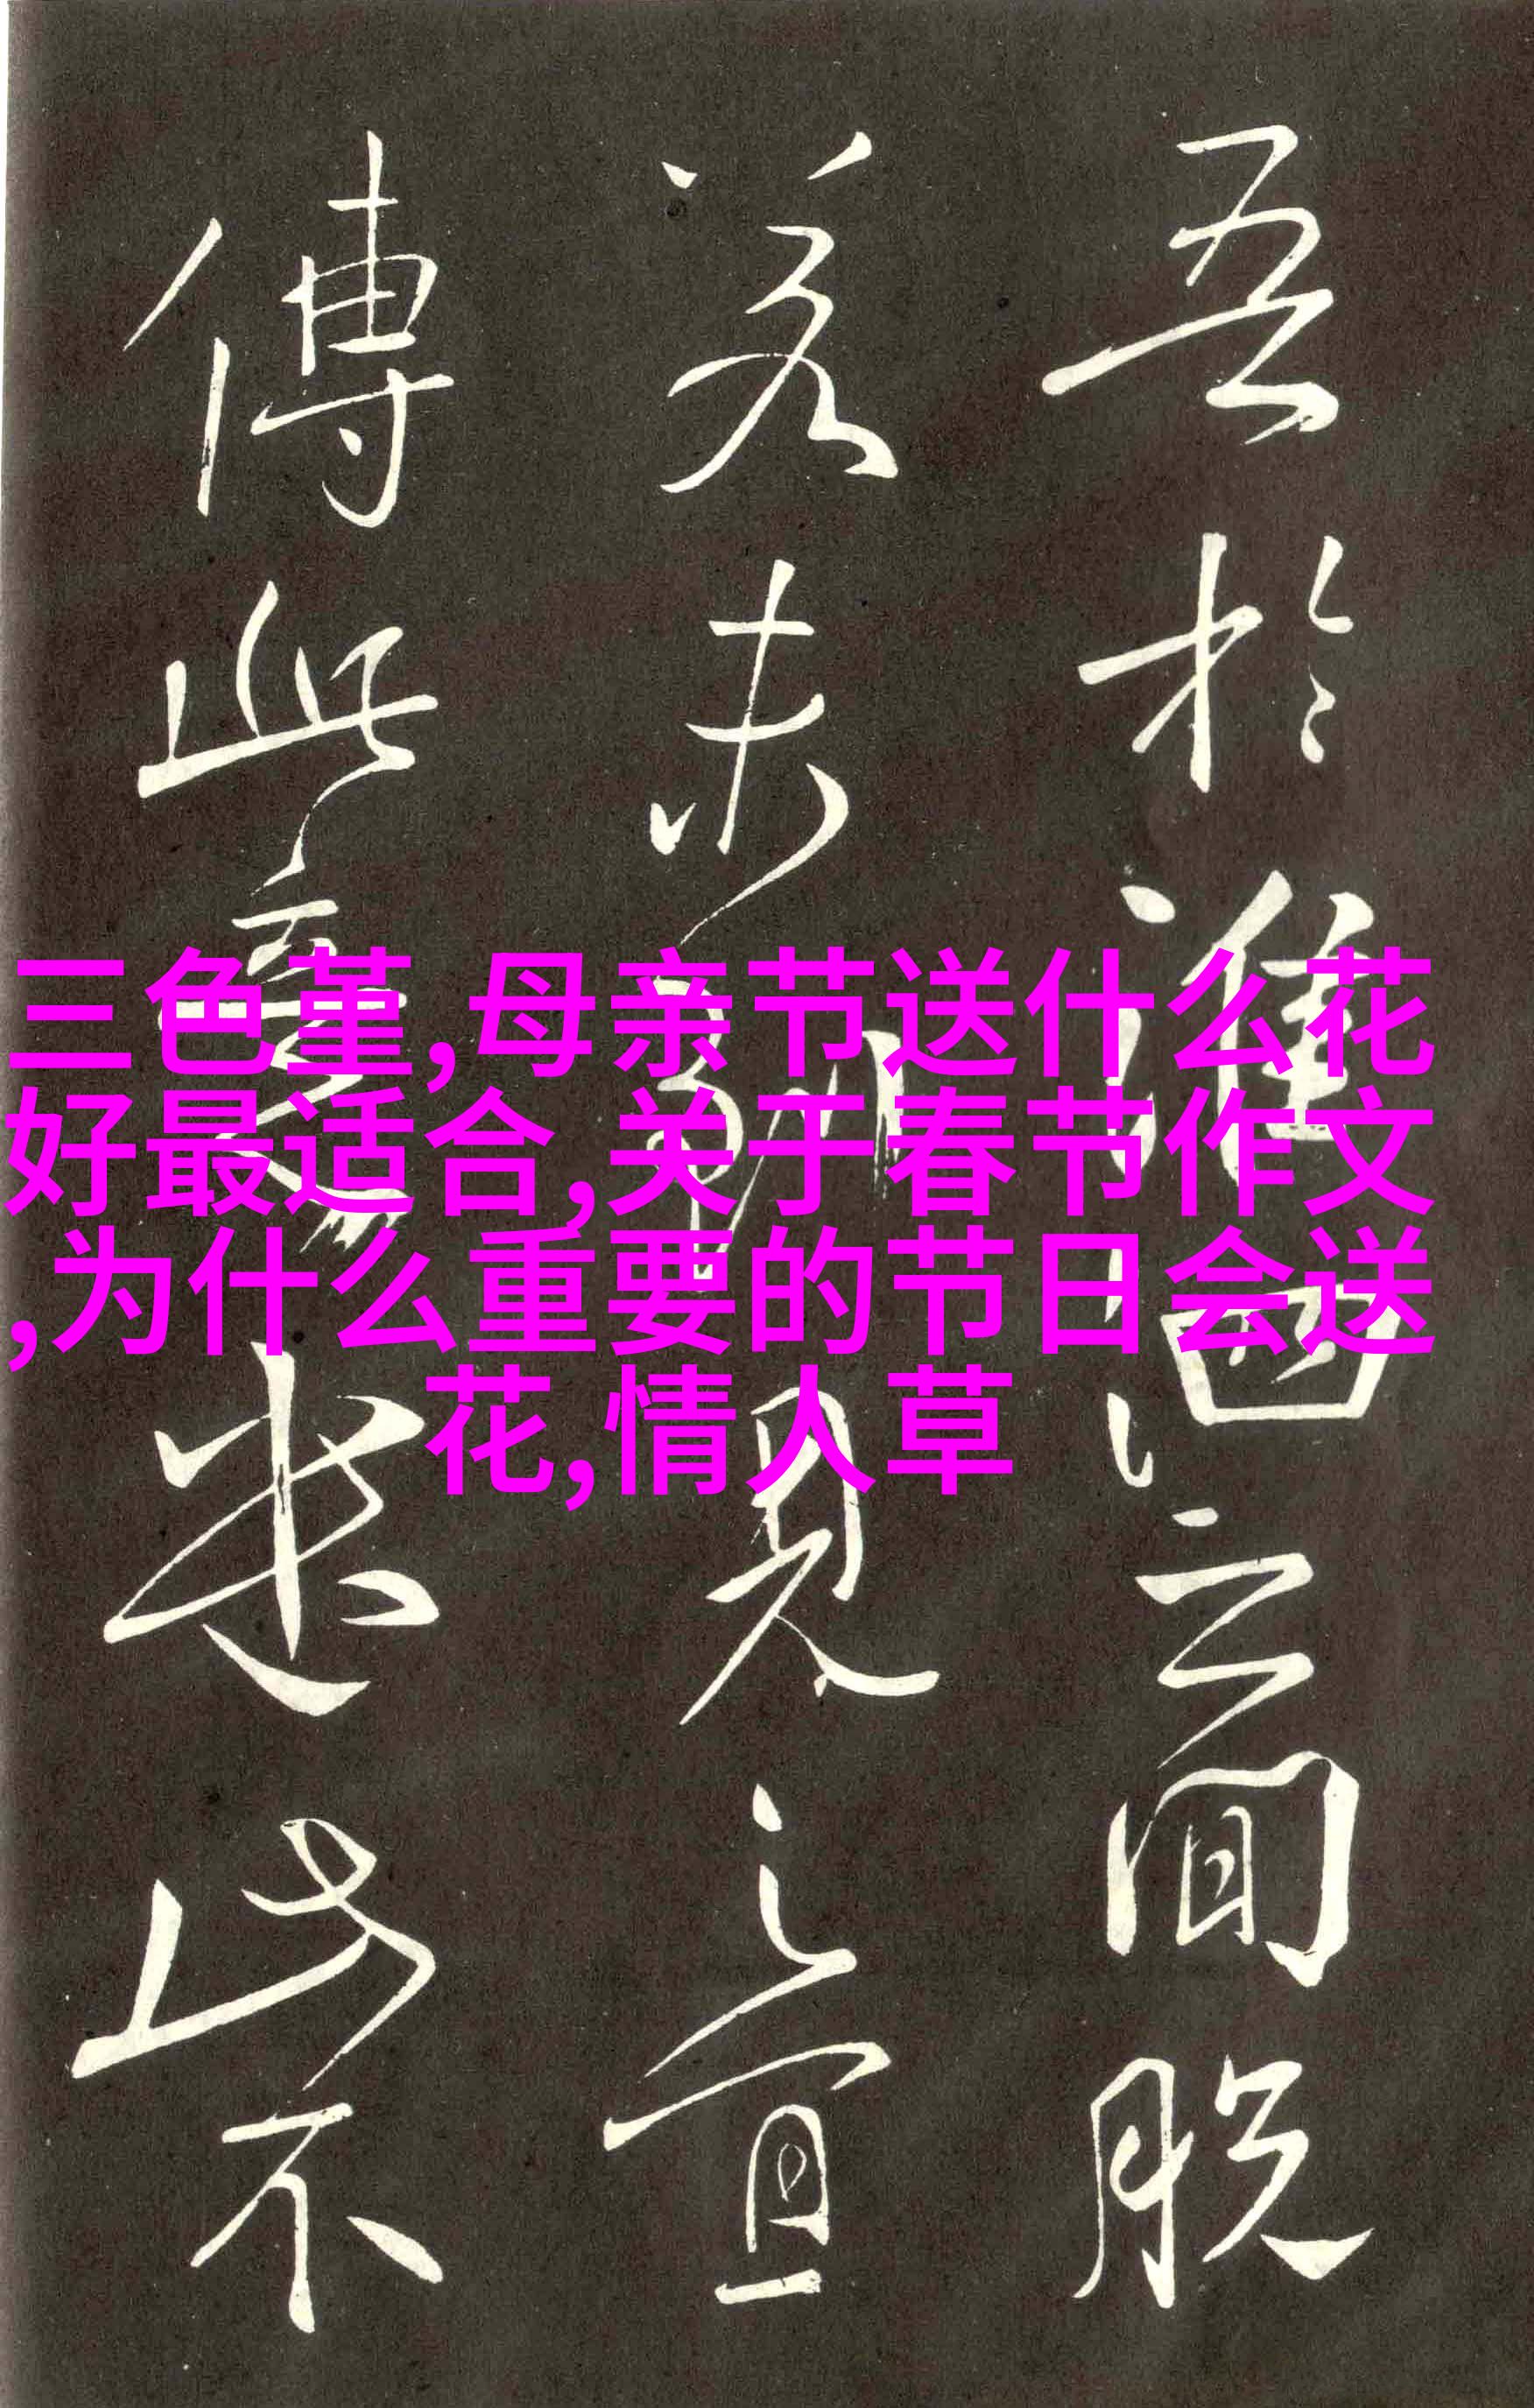 吾於淮泗之間脫
若未見之宜
傳此意此不
三色堇,母亲节送什么花
好最适合,关于春节作文
,为什么重要的节日会送
花,情人草